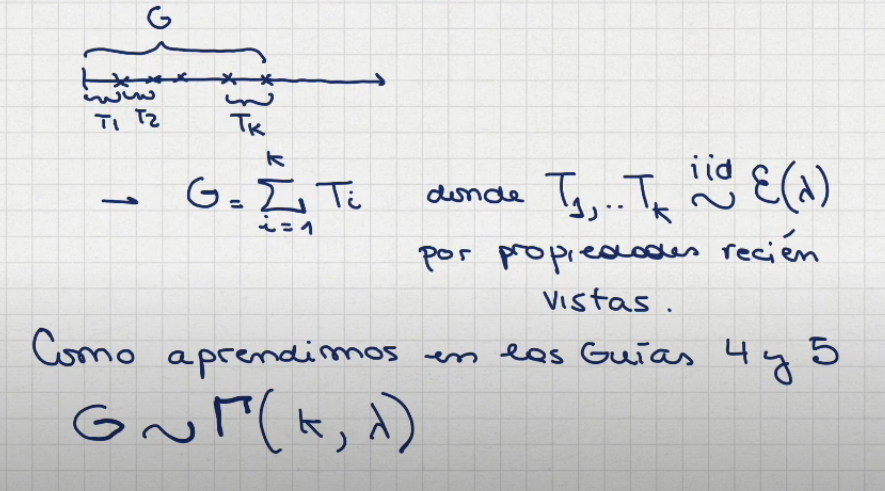 G
T1 T2 TK
→ G = ∑_{i=1}^{K} Ti donde T1,..Tk iid ~ ℰ(λ)
por propiedades recién
vistas.
Como aprendimos en las Guías 4 y 5
G ~ Γ(k, λ)